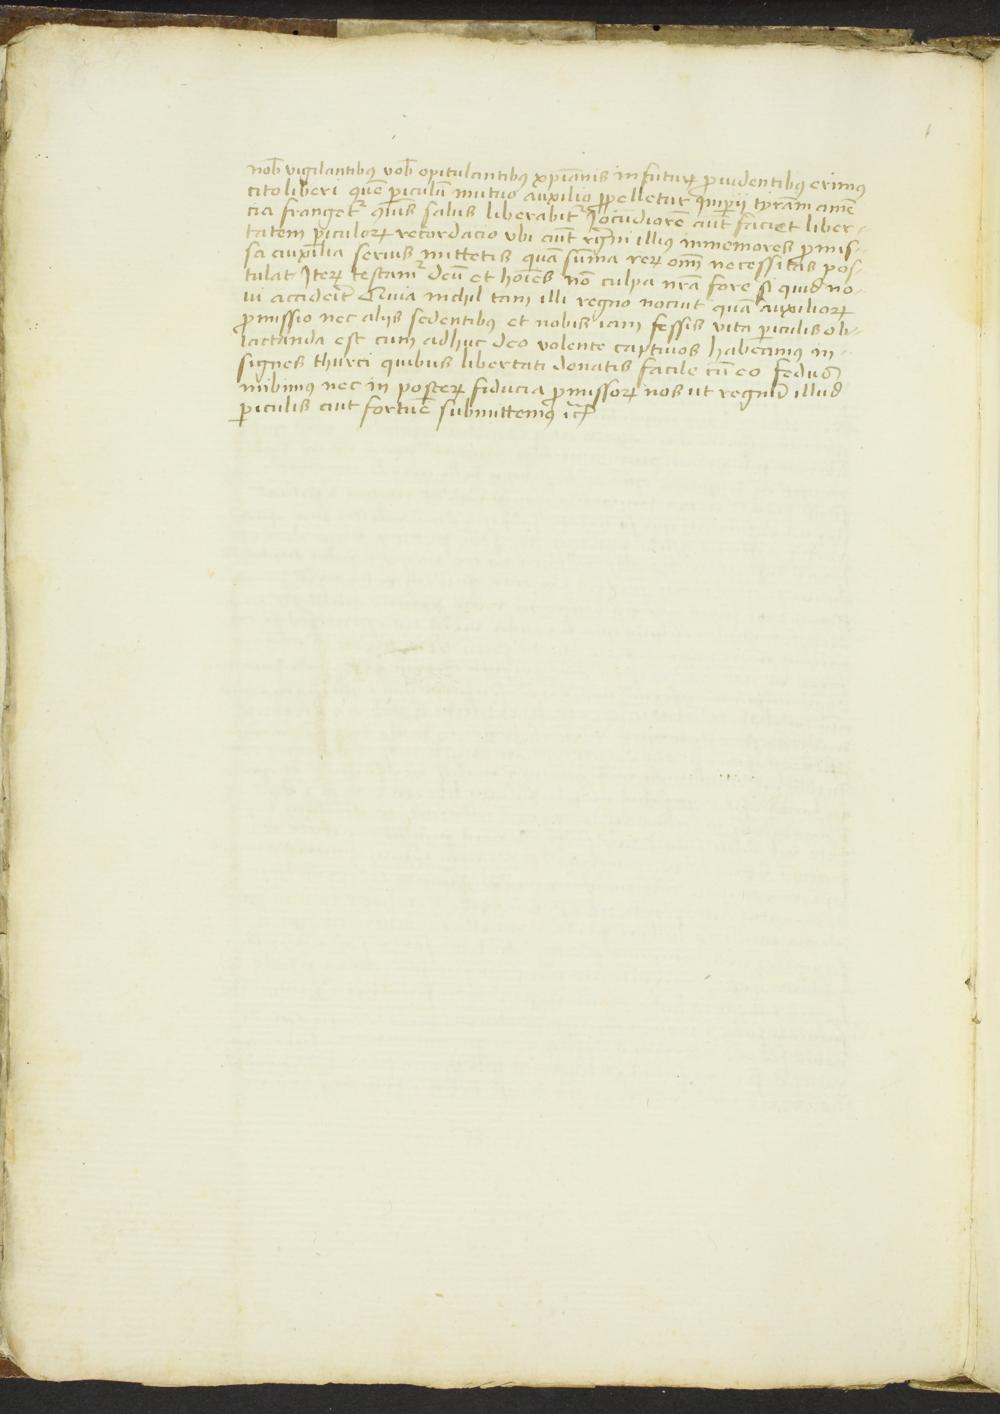 nob̄ vigilantibꝯ vob̄ opitulantibꝯ xp̄ianis in futurꝝ ꝓuidentibꝯ erimꝯ
cito liberi quē ꝑiculū mutuo auxilio ꝓpelletur impij tyrām amē
cia frangetᷣ quis salus liberabitᷣ Jocūdiorē aūt faciet liber-
tatem ꝑiculorꝝ recordacio vbi aūt rēgni illiꝯ mmemores ꝓmis-
sa auxilia serius mittetis quā sūma rerꝝ om̄ necessitas pos-
tulat Jterꝝ testamᷣ deū et hoīes nō culpa nr̄a fore si quid no-
ui accideīt Quia nichil tam illi regno nociuit quā auxiliorꝝ
ꝓmissio nec alijs sedentibꝯ et nobis iam fessis vita ꝑiculis ob-
iactanda est cum adhuc deo volente captiuos habeamus in-
signes thurci quibus libertati donatis facile cū eo fedus
inibimꝯ nec in posterꝝ fiducia ꝓmissorꝝ nos ut regnū illud
ꝑiculis aut fortūe submittemꝯ